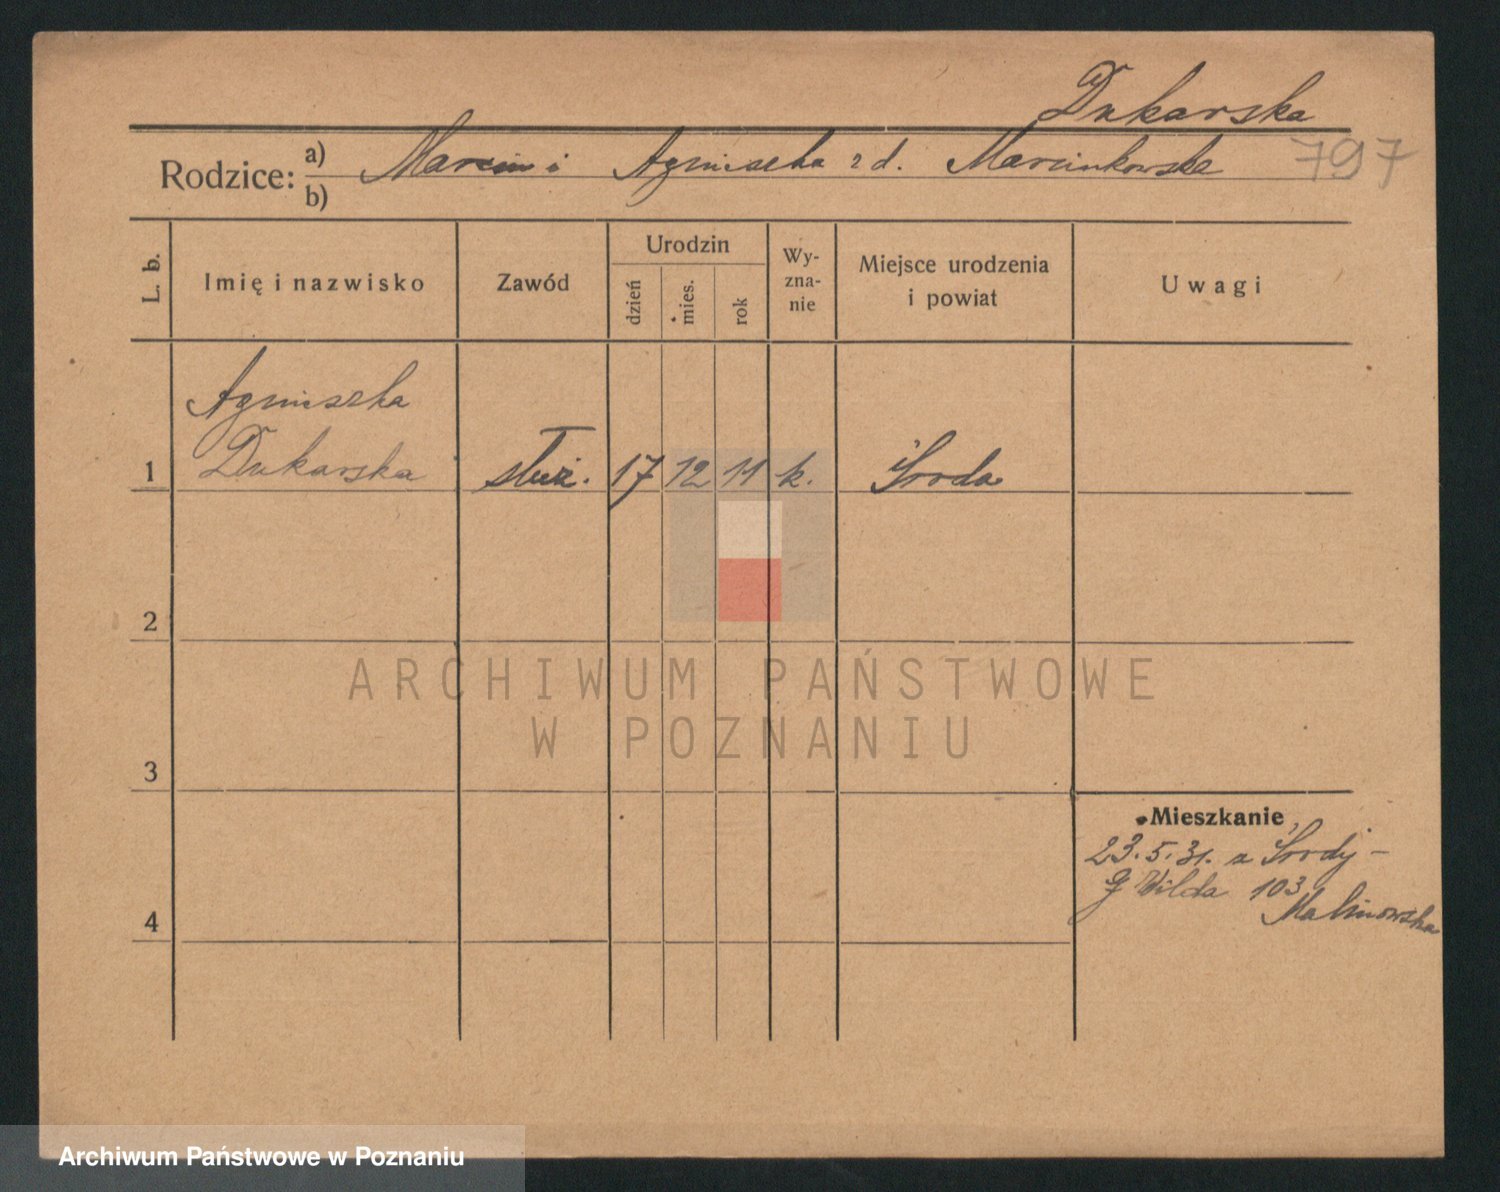 Dukarska
Rodzice: a) Marcin i Agnieszka z d. Marcinkowska 797
b)
L. b. Imię i nazwisko Zawód Urodzin dzień mies. rok Wy-zna-nie Miejsce urodzenia i powiat Uwagi
Agnieszka
1 Dukarska służ. 17 12 11 k. Środa
2
ARCHIWUM PAŃSTWOWE
W POZNANIU
3
Mieszkanie
23.5.31. z Środy –
G Wilda 103
Malinowska
4
Archiwum Państwowe w Poznaniu